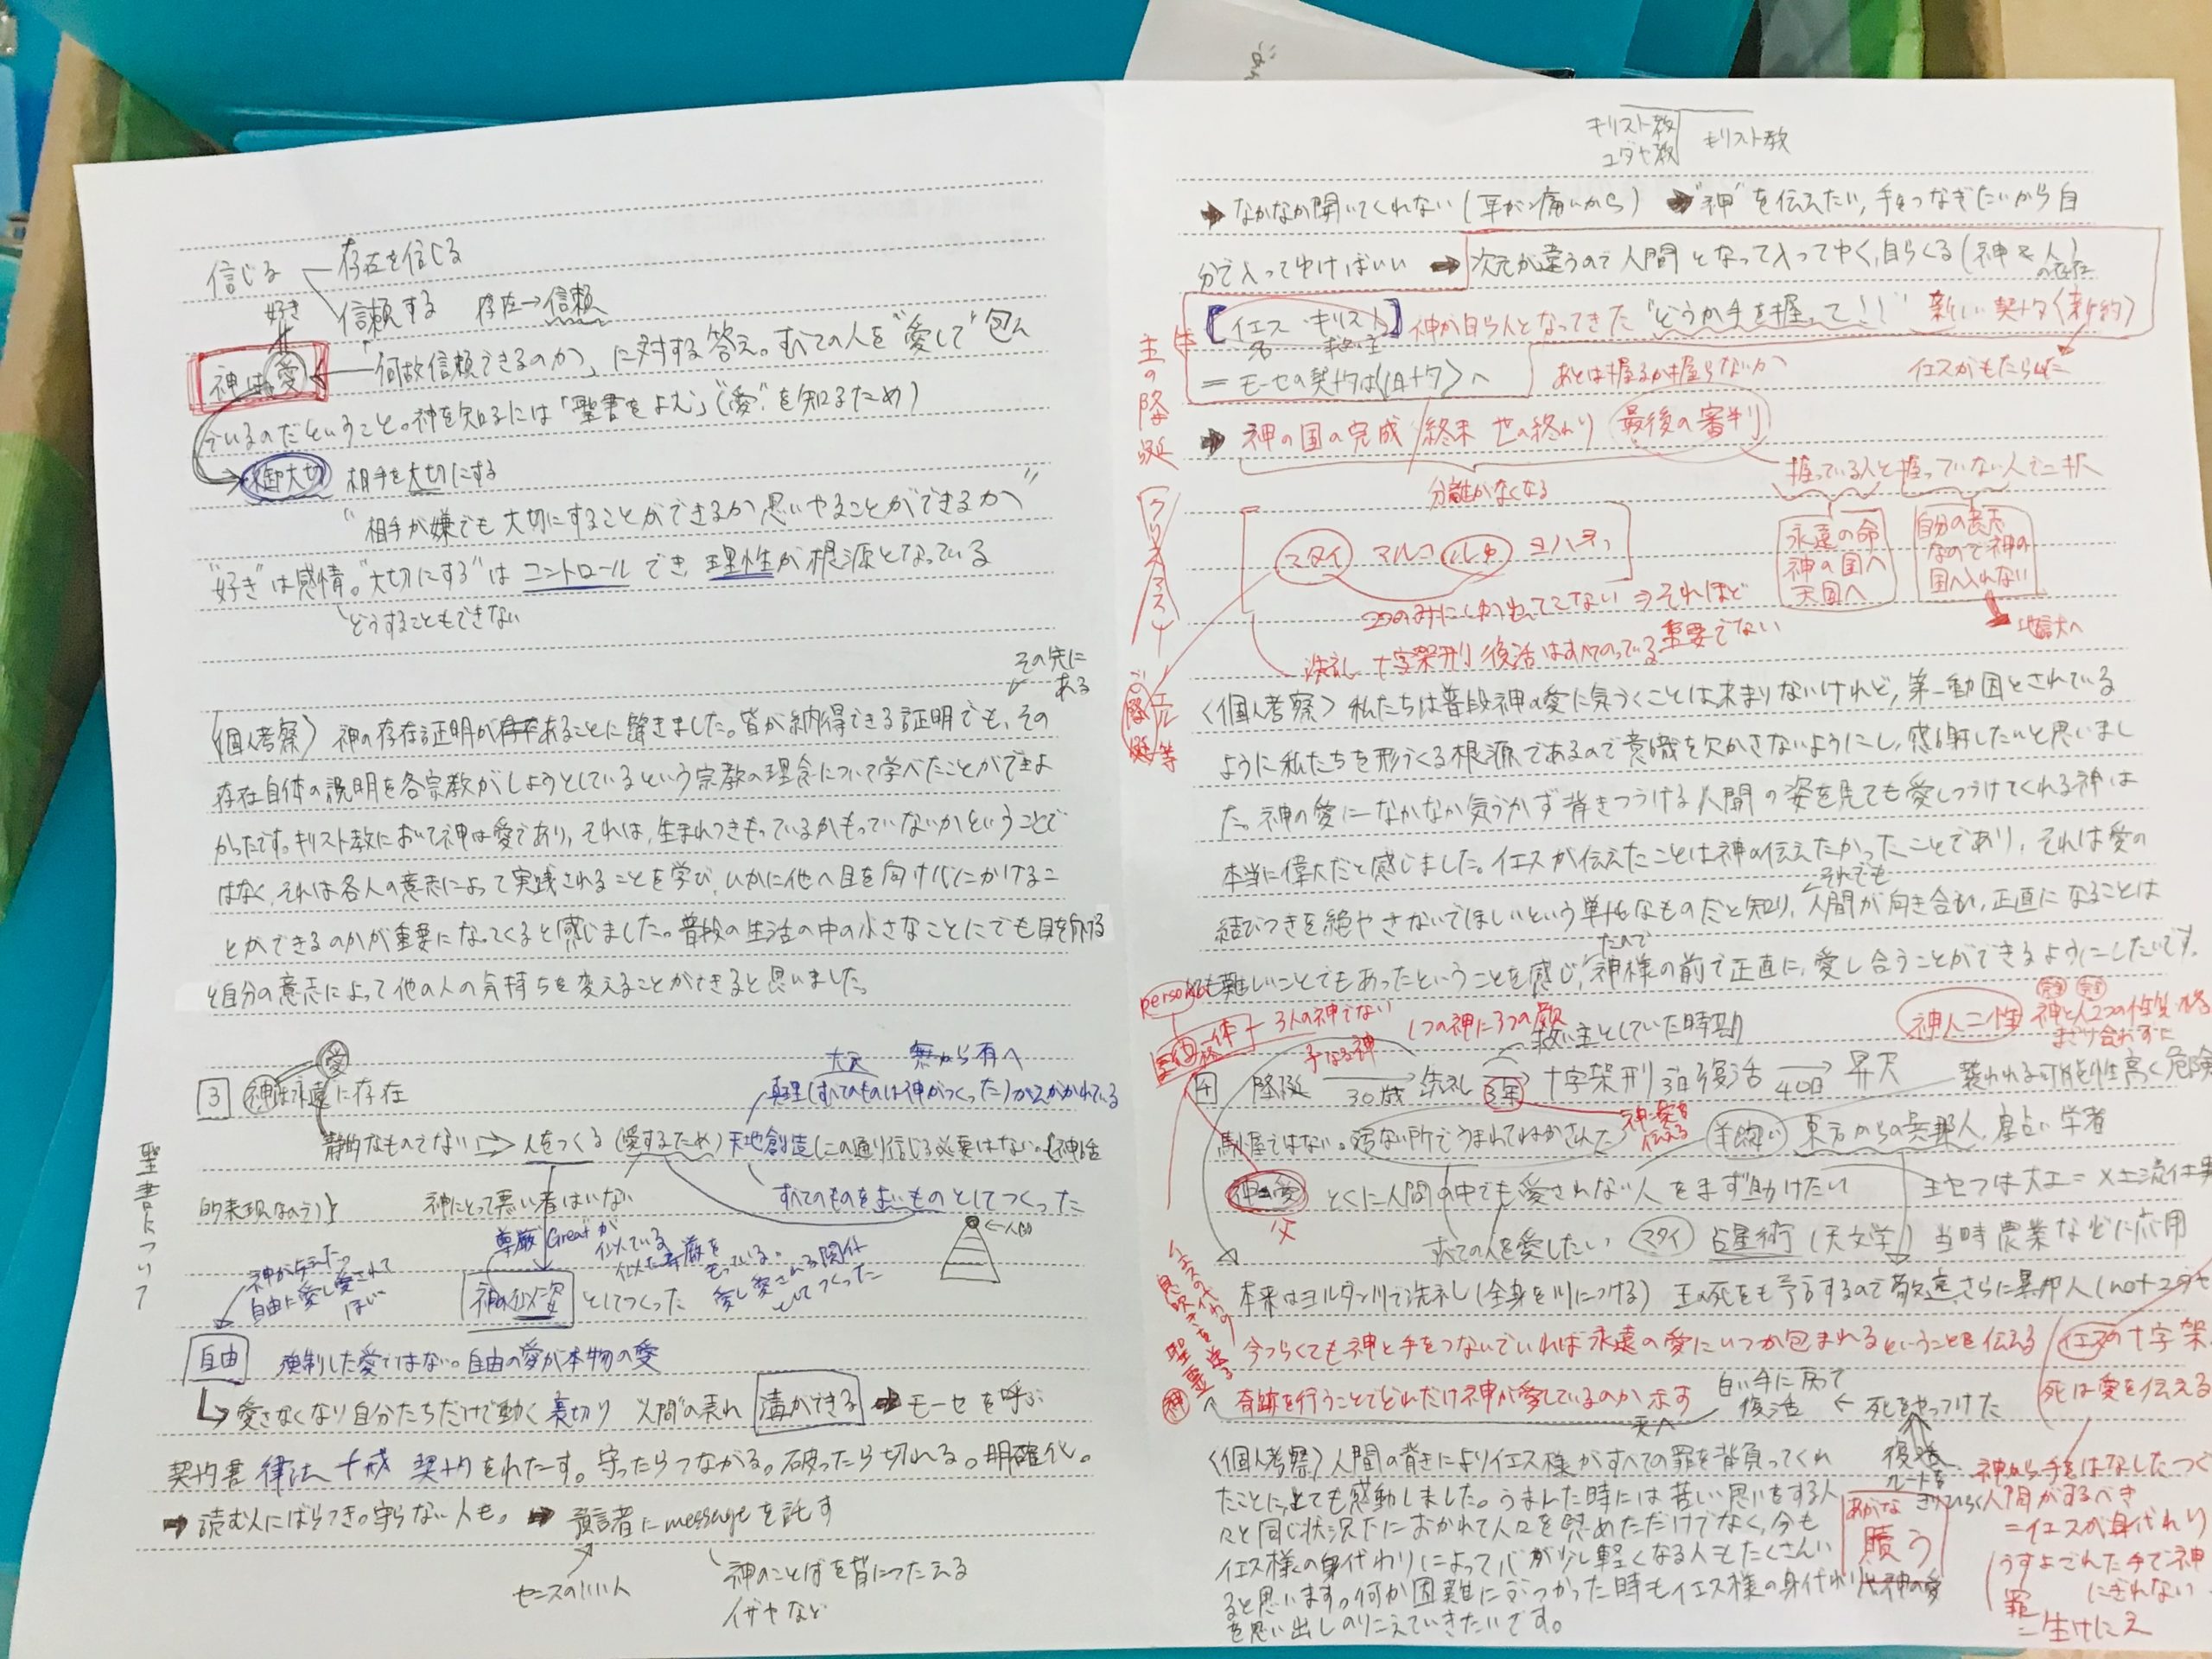 信じる
存在を信じる
信頼する 存在→信頼
好き
神は愛
「何故信頼できるのか」に対する答え。すべての人を"愛して"包ん
でいるのだということ。神を知るには「聖書をよむ」("愛"を知るため)
御大切 相手を大切にする
"相手が嫌でも大切にすることができるか思いやることができるか"
"好き"は感情。"大切にする"はコントロールでき理性が根源となっている
どうすることもできない
その先に
ある
〈個人考察〉神の存在証明があることに驚きました。皆が納得できる証明でも、その
存在自体の説明を各宗教がしようとしているという宗教の理念について学べたことができよ
かったです。キリスト教において神は愛であり、それは、生まれつきもっているかもっていないかということで
はなく、それは各人の意志によって実践されることを学び、いかに他へ目を向け心にかけるこ
とができるのかが重要になってくると感じました。普段の生活の中の小さなことにでも目を向ける
と自分の意志によって他の人の気持ちを変えることができると思いました。
愛
3 神は永遠に存在
無から有へ
真理(すべてのものは神がつくった)がえがかれている
静的なものでない⇒人をつくる(愛するため)天地創造(この通り信じる必要はない。神話
的表現なので)
神にとって悪い者はいない
すべてのものをよいものとしてつくった
←人間
尊厳 Greatが
似ている
似た尊厳を
もっている。
愛し愛される関係
としてつくった
神の似姿 としてつくった
神が与えた
自由に愛し愛されて
ほしい
聖書について
自由 強制した愛ではない。自由の愛が本物の愛
愛さなくなり自分たちだけで動く裏切り 人間の表れ 溝ができる ➡ モーセを呼ぶ
契約書 律法 十戒 契約をわたす。守ったらつながる。破ったら切れる。明確化。
➡ 読む人にばらつき。守らない人も。➡ 預言者にmessageを託す
センスのいい人
神のことばを皆につたえる
イザヤなど
キリスト教
ユダヤ教
キリスト教
➡ なかなか聞いてくれない(耳が痛いから) ➡ "神"を伝えたい, 手をつなぎたいから自
分で入ってゆけばいい ➡ 次元が違うので人間となって入ってゆく, 自らくる(神&人)
の存在
【イエス・キリスト】神が自ら人となってきた "どうか手を握って!!" 新しい契約〈新約〉
名 救い主
=モーセの契約は〈旧約〉へ
あとは握るか握らないか
イエスがもたらした
主の降誕
➡ 神の国の完成/終末 世の終わり 最後の審判
握っている人と握っていない人で二択
分離がなくなる
クリスマス
マタイ マルコ ルカ ヨハネ
永遠の命
神の国へ
天国へ
自分の意志
なので神の
国へ入れない
地獄へ
2つのみにしかかかれてこない ⇒ それほど
重要でない
洗礼 十字架刑 復活はすべてのっている
〈個人考察〉私たちは普段神の愛に気づくことはあまりないけれど, 第一動因とされている
ように私たちを形づくる根源であるので意識を欠かさないようにし, 感謝したいと思いまし
た。神の愛になかなか気づかず背きつづける人間の姿を見ても愛しつづけてくれる神は
本当に偉大だと感じました。イエスが伝えたことは神の伝えたかったことであり, それは愛の
それでも
結びつきを絶やさないでほしいという単純なものだと知り, 人間が向き合い, 正直になることは
たので
とても難しいことでもあったということを感じ, 神様の前で正直に, 愛し合うことができるようにしたいです。
persona
三位一体
3人の神でない
1つの神に3つの顔
子なる神
救い主としていた時期
神人二性
完全 完全
神と人2つの性質
まざり合わずに
4 降誕 → 30歳 → 洗礼 → 3年 → 十字架刑 3日 復活 → 40日 昇天
襲われる可能性高く危険
神の愛を
伝える
馬屋ではない。汚ない所でうまれてねかされた
羊飼い 東方からの異邦人, 星占い学者
神の愛 とくに人間の中でも愛されない人をまず助けたい
父
ヨセフは大工=×上流仕事
すべての人を愛したい マタイ 占星術(天文学) 当時農業などに応用
本来はヨルダン川で洗礼(全身を川につける)
今つらくても神と手をつないでいれば永遠の愛にいつか包まれるということを伝える
イエスの十字架
死は愛を伝える
聖霊
神
奇跡を行うことでどれだけ神が愛しているのか示す
天へ
復活 ← 死をやっつけた
復活
ルートを
きりひらく
〈個人考察〉人間の背きによりイエス様がすべての罪を背負ってくれ
たことに, とても感動しました。うまれた時には苦しい思いをする人
々と同じ状況下におかれて人々を慰めただけでなく, 今も
イエス様の身代わりによって心が少し軽くなる人もたくさんい
ると思います。何か困難にぶつかった時もイエス様の身代わりと神の愛
を思い出しのりこえていきたいです。
あがな
贖う
神から手をはなしたつぐ
人間がするべき
=イエスが身代わり
うすよごれた手で神
にぎれない
罪
=生けにえ